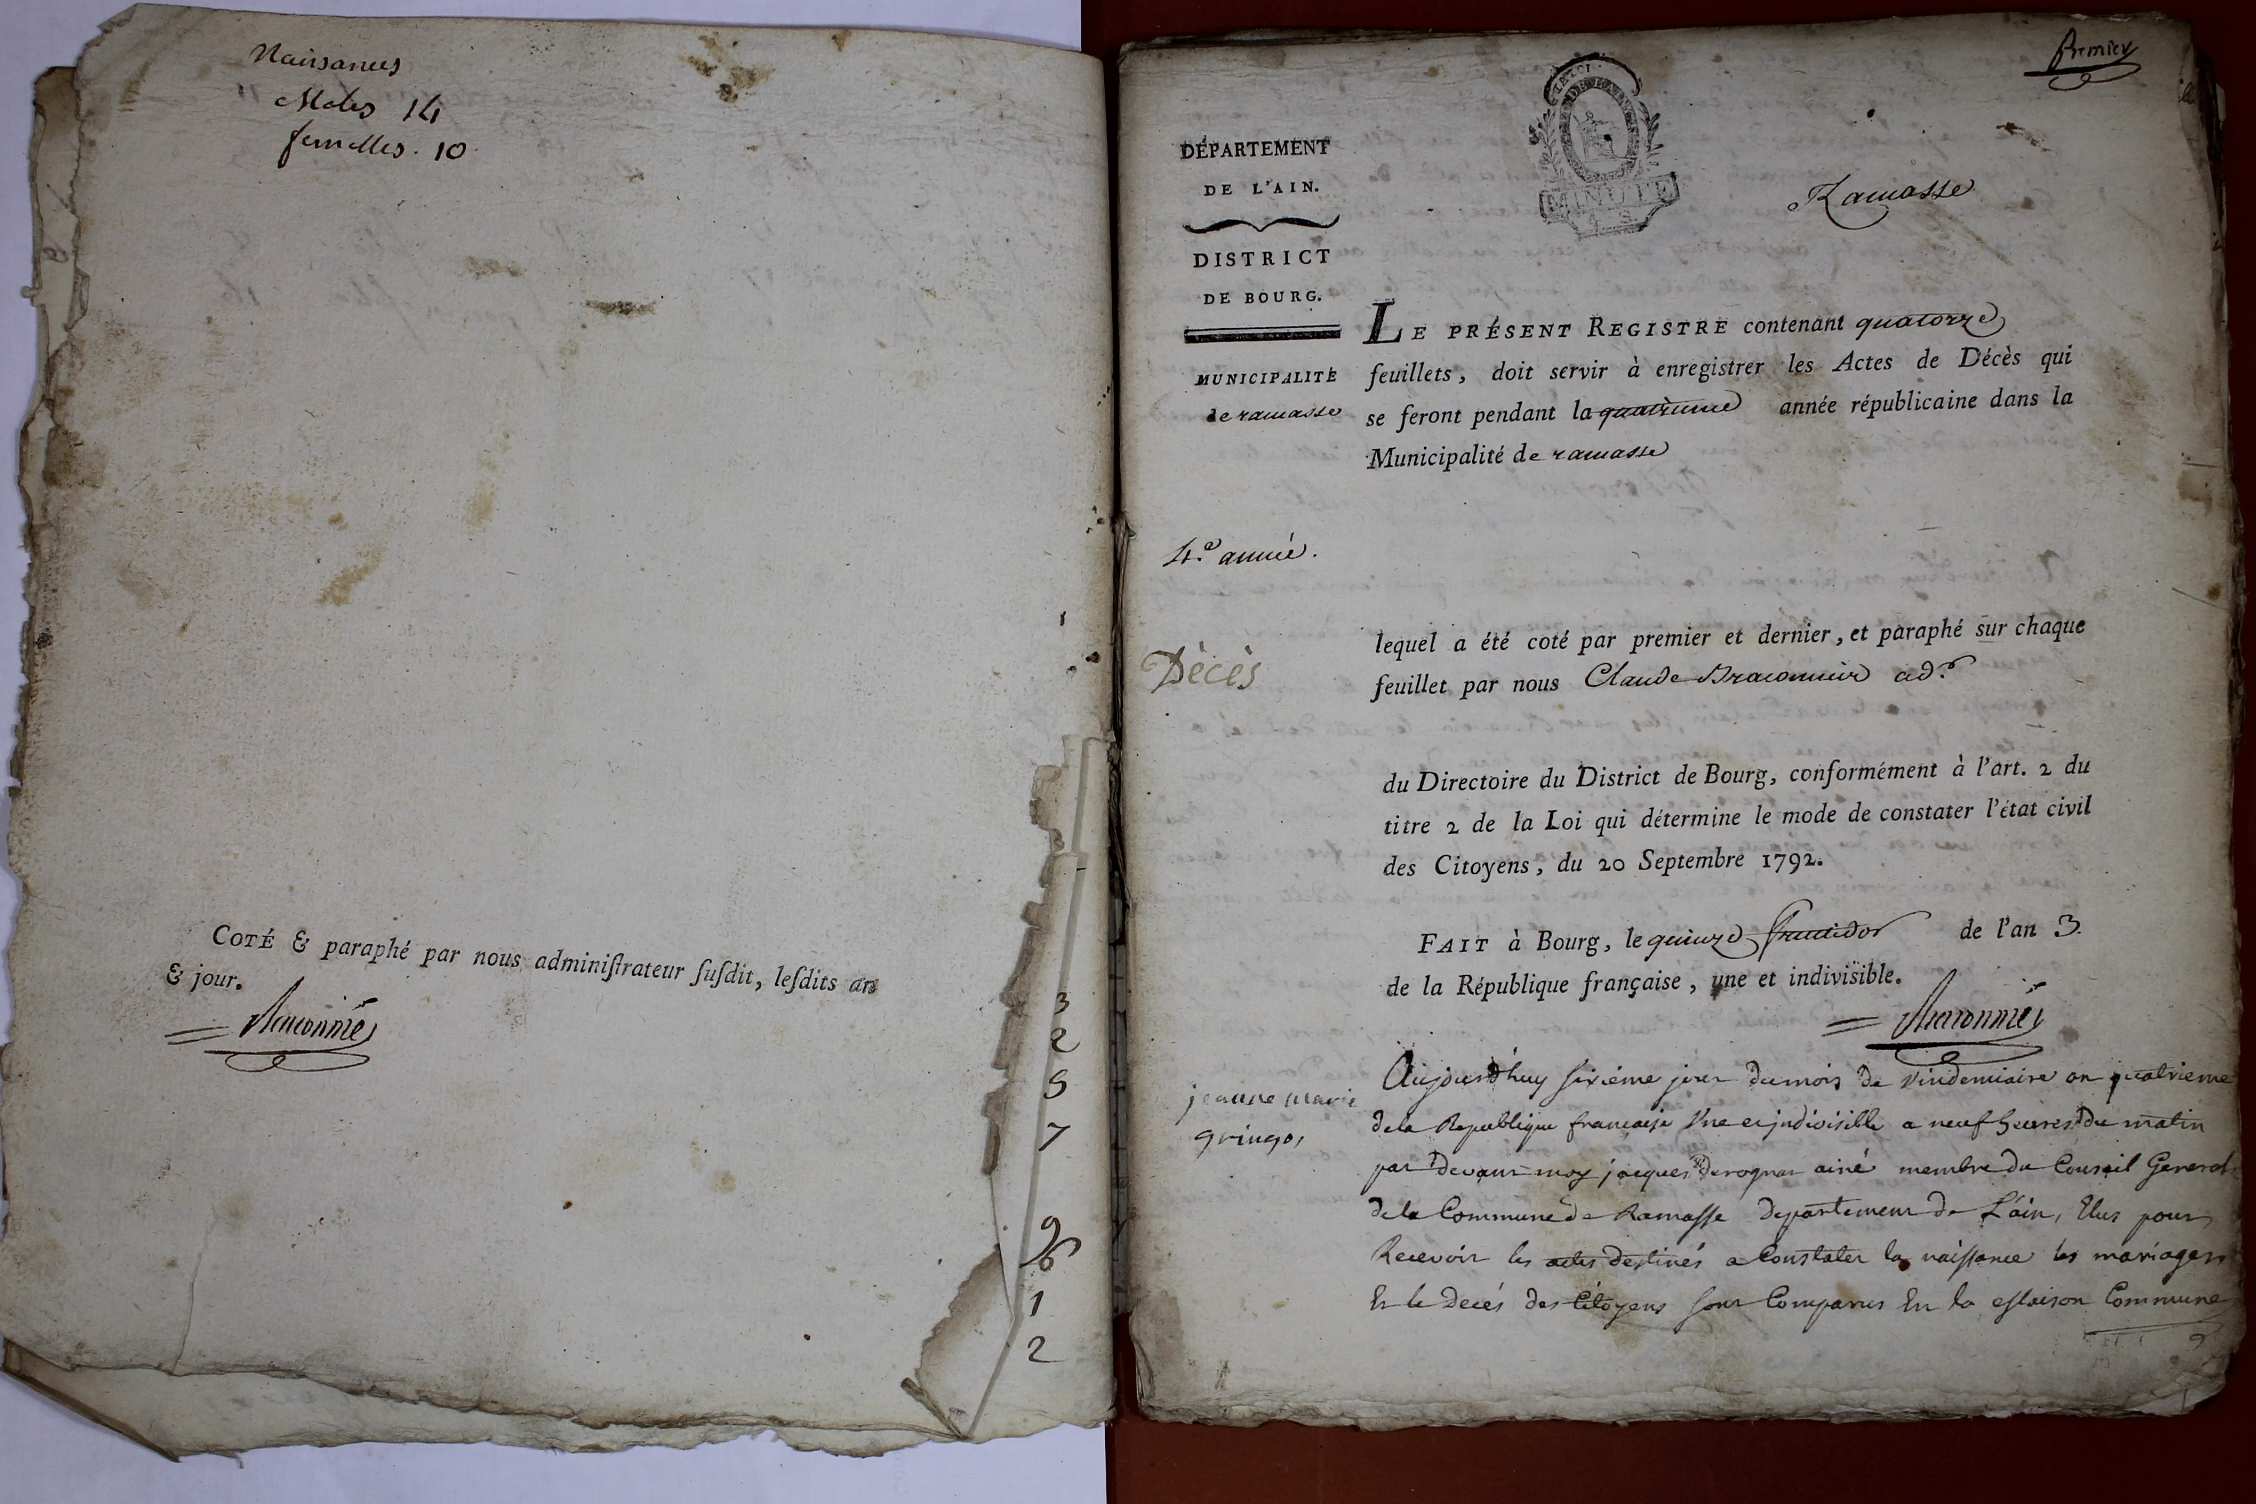 Naissances
Males 14
femelles . 10
COTÉ & paraphé par nous administrateur susdit, lesdits an
& jour.
Braconnier
3
2
5
7
9
6
1
2
Premier
DÉPARTEMENT
DE L'AIN.
DISTRICT
DE BOURG.
MUNICIPALITÉ
de ramasse
4.e année.
Décès
jeanne marie
gringos
MINUTE
Ramasse
LE PRÉSENT REGISTRE contenant quatorze
feuillets, doit servir à enregistrer les Actes de Décès qui
se feront pendant la quatrieme année républicaine dans la
Municipalité de ramasse
lequel a été coté par premier et dernier, et paraphé sur chaque
feuillet par nous Claude Braconnier ad.r
du Directoire du District de Bourg, conformément à l'art. 2 du
titre 2 de la Loi qui détermine le mode de constater l'état civil
des Citoyens, du 20 Septembre 1792.
FAIT à Bourg, le quinze fructidor de l'an 3.
de la République française, une et indivisible.
Braconnier
Aujourd'huy sixiéme jour du mois de vindemiaire an quatrieme
de la Republique francaise Une et jndivisible a neuf heures du matin
par devant moy jacques derognat ainé membre du Conseil General
de la Commune de Ramasse departement de L'ain, Elus pour
Recevoir les actes destinés a Constater la naissance les mariages
Et le Decés des Citoyens sont Comparus En la Maison Commune